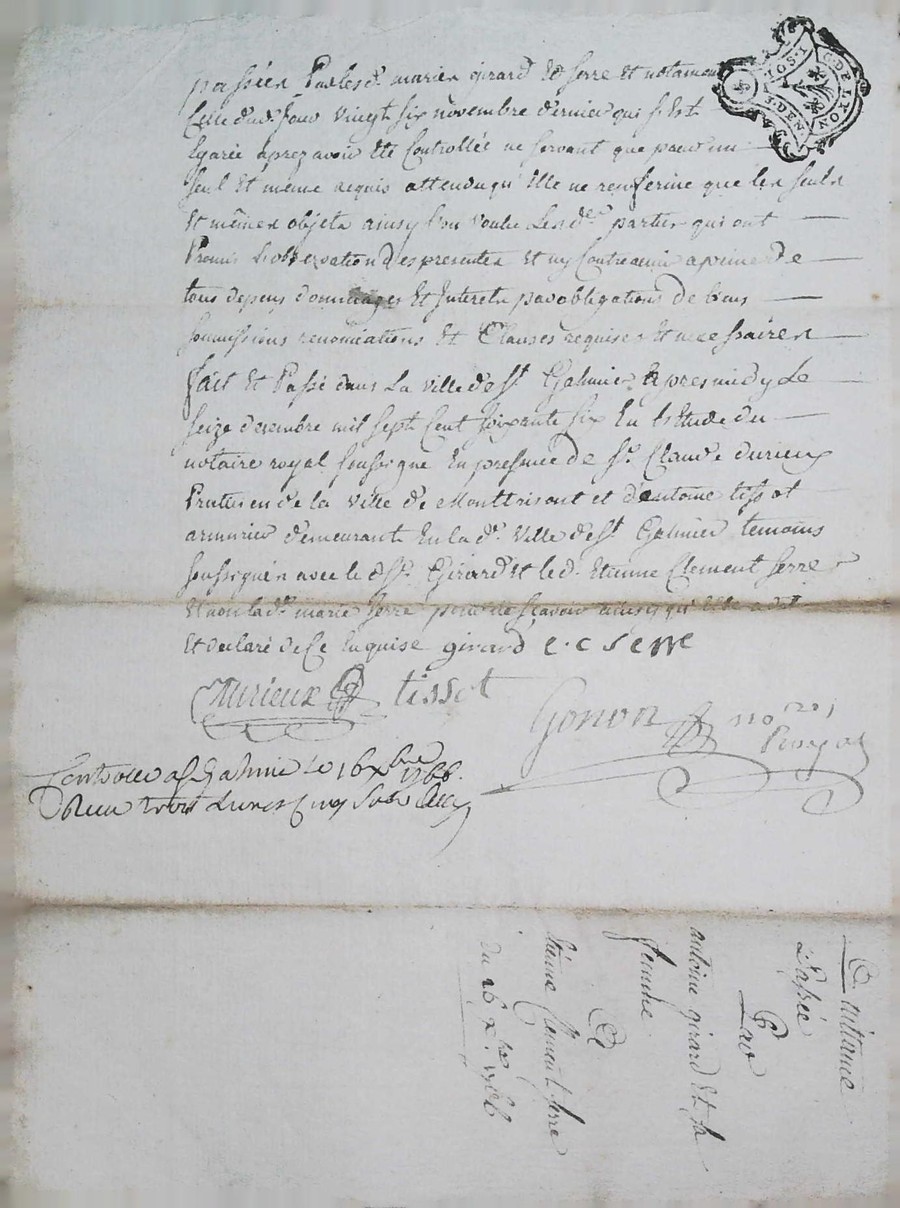 passées Par les d. mariés girard Et Serre Et notament
Celle du d. Jour vingt six novembre dernier qui s'Est
Egarée aprez avoir Eté Controllée ne servant que pour un
seul Et meme acquis attendu qu'Elle ne renferme que les seuls
Et mêmes objets ainsy l'on voulu Les d.es parties qui ont
Promis L'observation des presentes Et ny Contrevenir a peine de
tous depens dommages Et Interets par obligations de biens
soumissions renonciations Et Clauses requises Et necessaires
fait Et Passé dans La ville de St Galmier Apres midy Le
seize decembre mil sept Cent soixante six En L'Etude du
notaire royal soussigné En presence de Sr. Claude durieux
Praticien de la ville de Montbrisont et d'antoine tissot
armurier demeurants En la d. ville de St Galmier temoins
soussignés avec le d. Sr. Girard Et le d. Etienne Clement Serre
Et non la d. marie Serre pour ne scavoir ainsy qu'Elle a dit
Et declaré de Ce Enquise girard e.c Serre
Durieux tissot
Gonon no.re
Royal
Controllé a St Galmier le 16 xbre 1766.
Recu trois Livres Cinq Sols
Quittance
Passée
Par
antoine girard Et sa
femme
A
Etienne Clement Serre
du 16 x.bre 1766
C. DE LYON
1. SOL
3. DEN